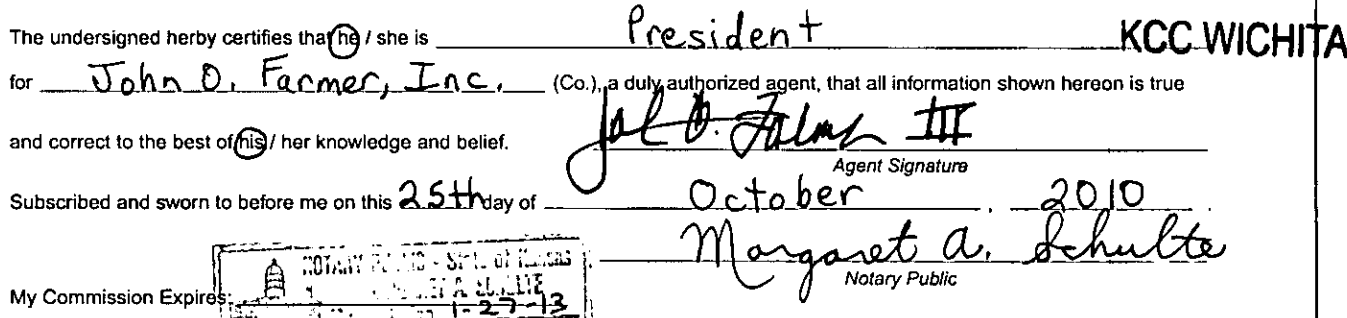 The undersigned herby certifies that he / she is President KCC WICHITA
for John O. Farmer, Inc. (Co.), a duly authorized agent, that all information shown hereon is true
and correct to the best of his / her knowledge and belief. John O. Farmer III
Agent Signature
Subscribed and sworn to before me on this 25th day of October, 2010.
Margaret A. Schulte
Notary Public
NOTARY PUBLIC - State of Kansas
MARGARET A. SCHULTE
My Commission Expires: 1-27-13